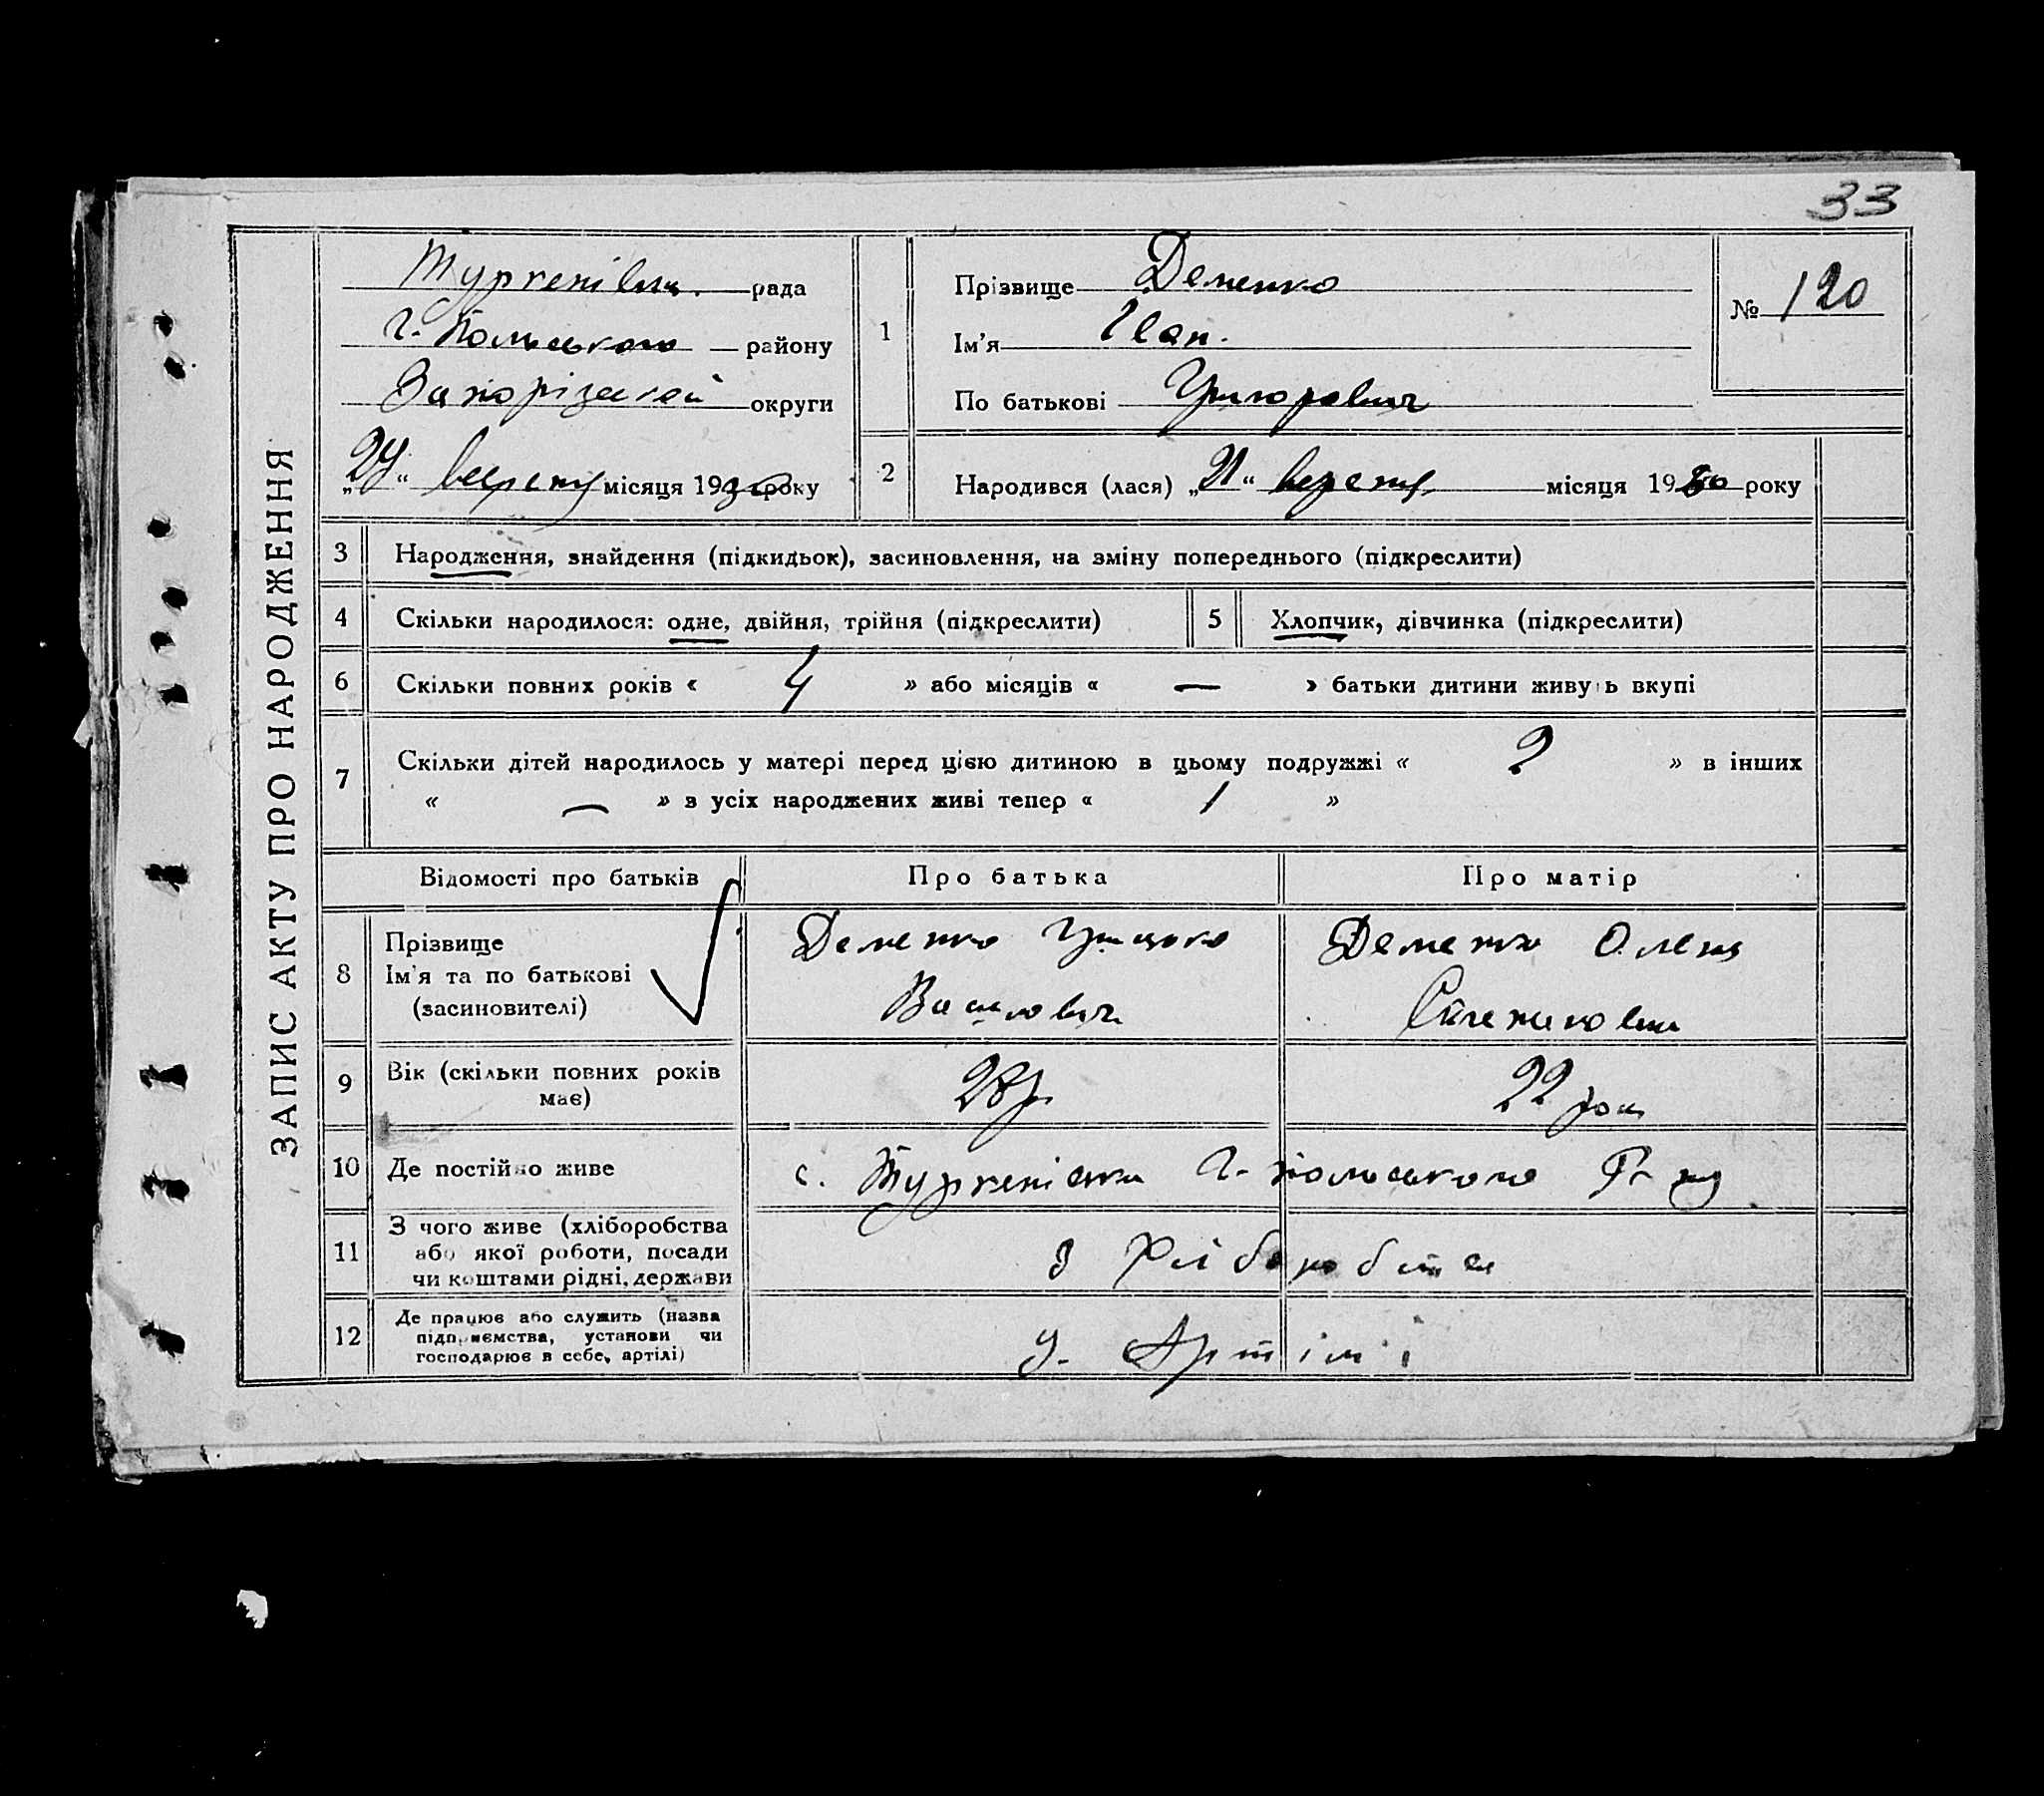 33
ЗАПИС АКТУ ПРО НАРОДЖЕННЯ
рада
району
Запорізької округи
місяця 1930 року
1
Прізвище Деменко
Ім'я Іван.
По батькові Григорович
№ 120
2
Народився (лася) „21“ березня місяця 1930 року
3 Народження, знайдення (підкидьок), засиновлення, на зміну попереднього (підкреслити)
4 Скільки народилося: одне, двійня, трійня (підкреслити)
5 Хлопчик, дівчинка (підкреслити)
6 Скільки повних років « 4 » або місяців « — » батьки дитини живуть вкупі
7 Скільки дітей народилось у матері перед цією дитиною в цьому подружжі « 2 » в інших
« — » в усіх народжених живі тепер « 1 »
Відомості про батьків Про батька Про матір
8 Прізвище
Ім'я та по батькові
(засиновителі)
Деменко Грицько
Васильович
Деменко Олена
9 Вік (скільки повних років
має)
28 р.
22 роки
10 Де постійно живе
с.
11 З чого живе (хліборобства
або якої роботи, посади
чи коштами рідні, держави
З
12 Де працює або служить (назва
підприємства, установи чи
господарює в себе, артілі)
У Артілі